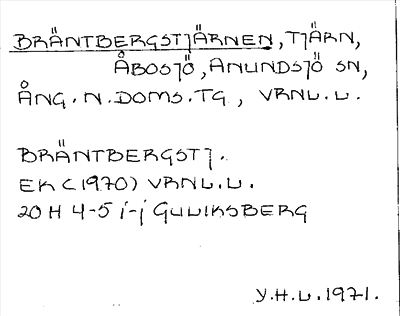 BRÄNTBERGSTJÄRNEN, TJÄRN,
ÅBOSJÖ, ANUNDSJÖ SN,
ÅNG. N. DOMS. TG, VRNL. L.
BRÄNTBERGSTJ.
EK (1970) VRNL. L.
20 H 4-5 i-j GULIKSBERG
Y.H.L. 1971.